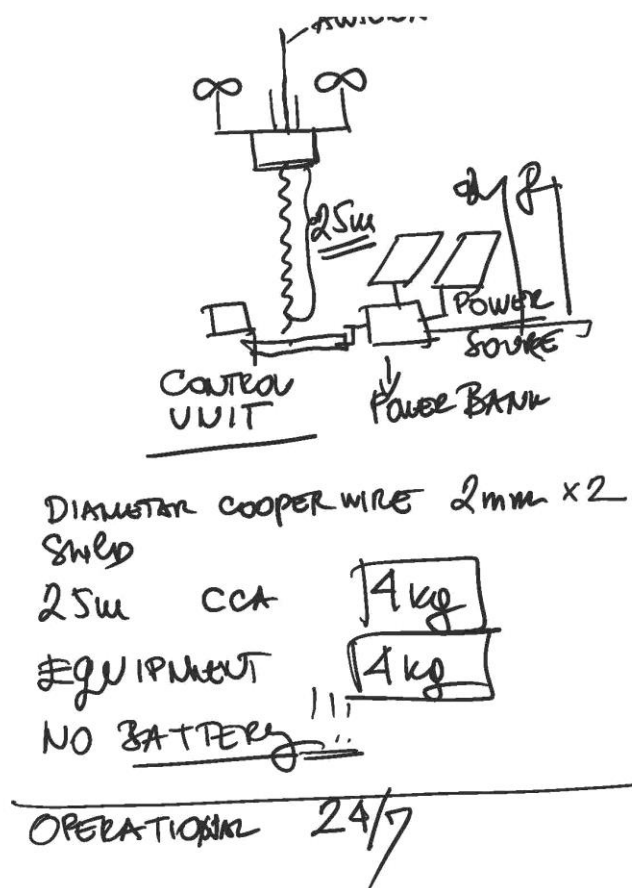 25m
POWER
SOURE
CONTROL
UNIT
POWER BANK
DIAMETAR COOPER WIRE 2mm x2
25m CCA 4kg
EQUIPMENT 4kg
NO BATTERY !!!
OPERATIONAL 24/7